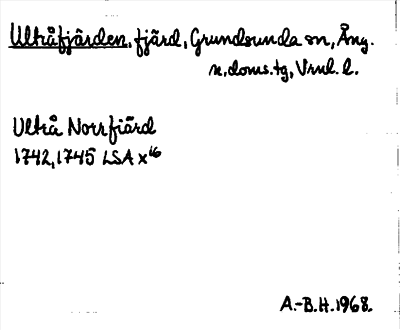 Ultråfjärden, fjärd, Grundsunda sn, Ång.
n. doms.tg, Vrnl. l.
Ultrå Norrfiärd
1742, 1745 LSA x16
A.-B.H. 1968.